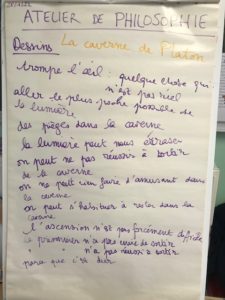 ATELIER DE PHILOSOPHIE
Dessins La caverne de Platon
trompe l'œil : quelque chose qui
n'est pas réel
aller le plus proche possible de
la lumière
des pièges dans la caverne
la lumière peut nous écraser
on peut ne pas réussir à sortir
de la caverne
on ne peut rien faire d'amusant dans
la caverne
on peut s'habituer à rester dans la
caverne
l'ascension n'est pas forcément difficile
prisonnier n'a pas envie de sortir
n'a pas réussi à sortir
parce que c'est dur